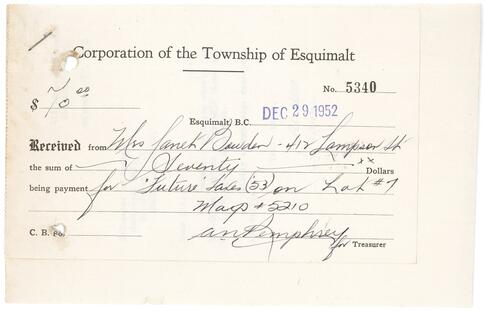 Corporation of the Township of Esquimalt
No. 5340
$ 70.00
Esquimalt, B.C. DEC 29 1952
Received from Mrs Janet Bowden - 412 Lampson St
the sum of Seventy xx Dollars
being payment for "Future" Taxes ('53) on Lot #7
Map #5210
C. B. Fo.
for Treasurer